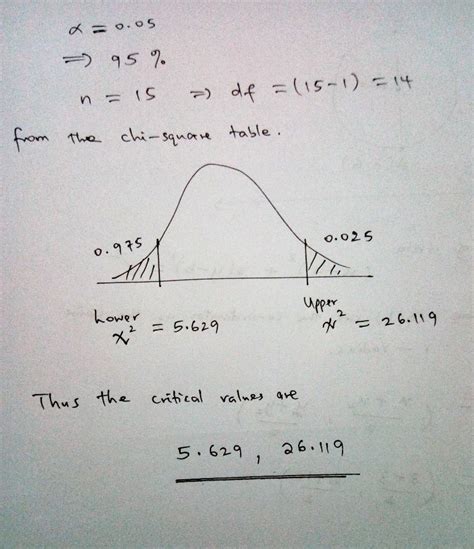 α = 0.05
⇒ 95 %
n = 15 ⇒ df = (15-1) = 14
from the chi-square table.
0.975
0.025
Lower
x² = 5.629
Upper
x² = 26.119
Thus the critical values are
5.629 , 26.119